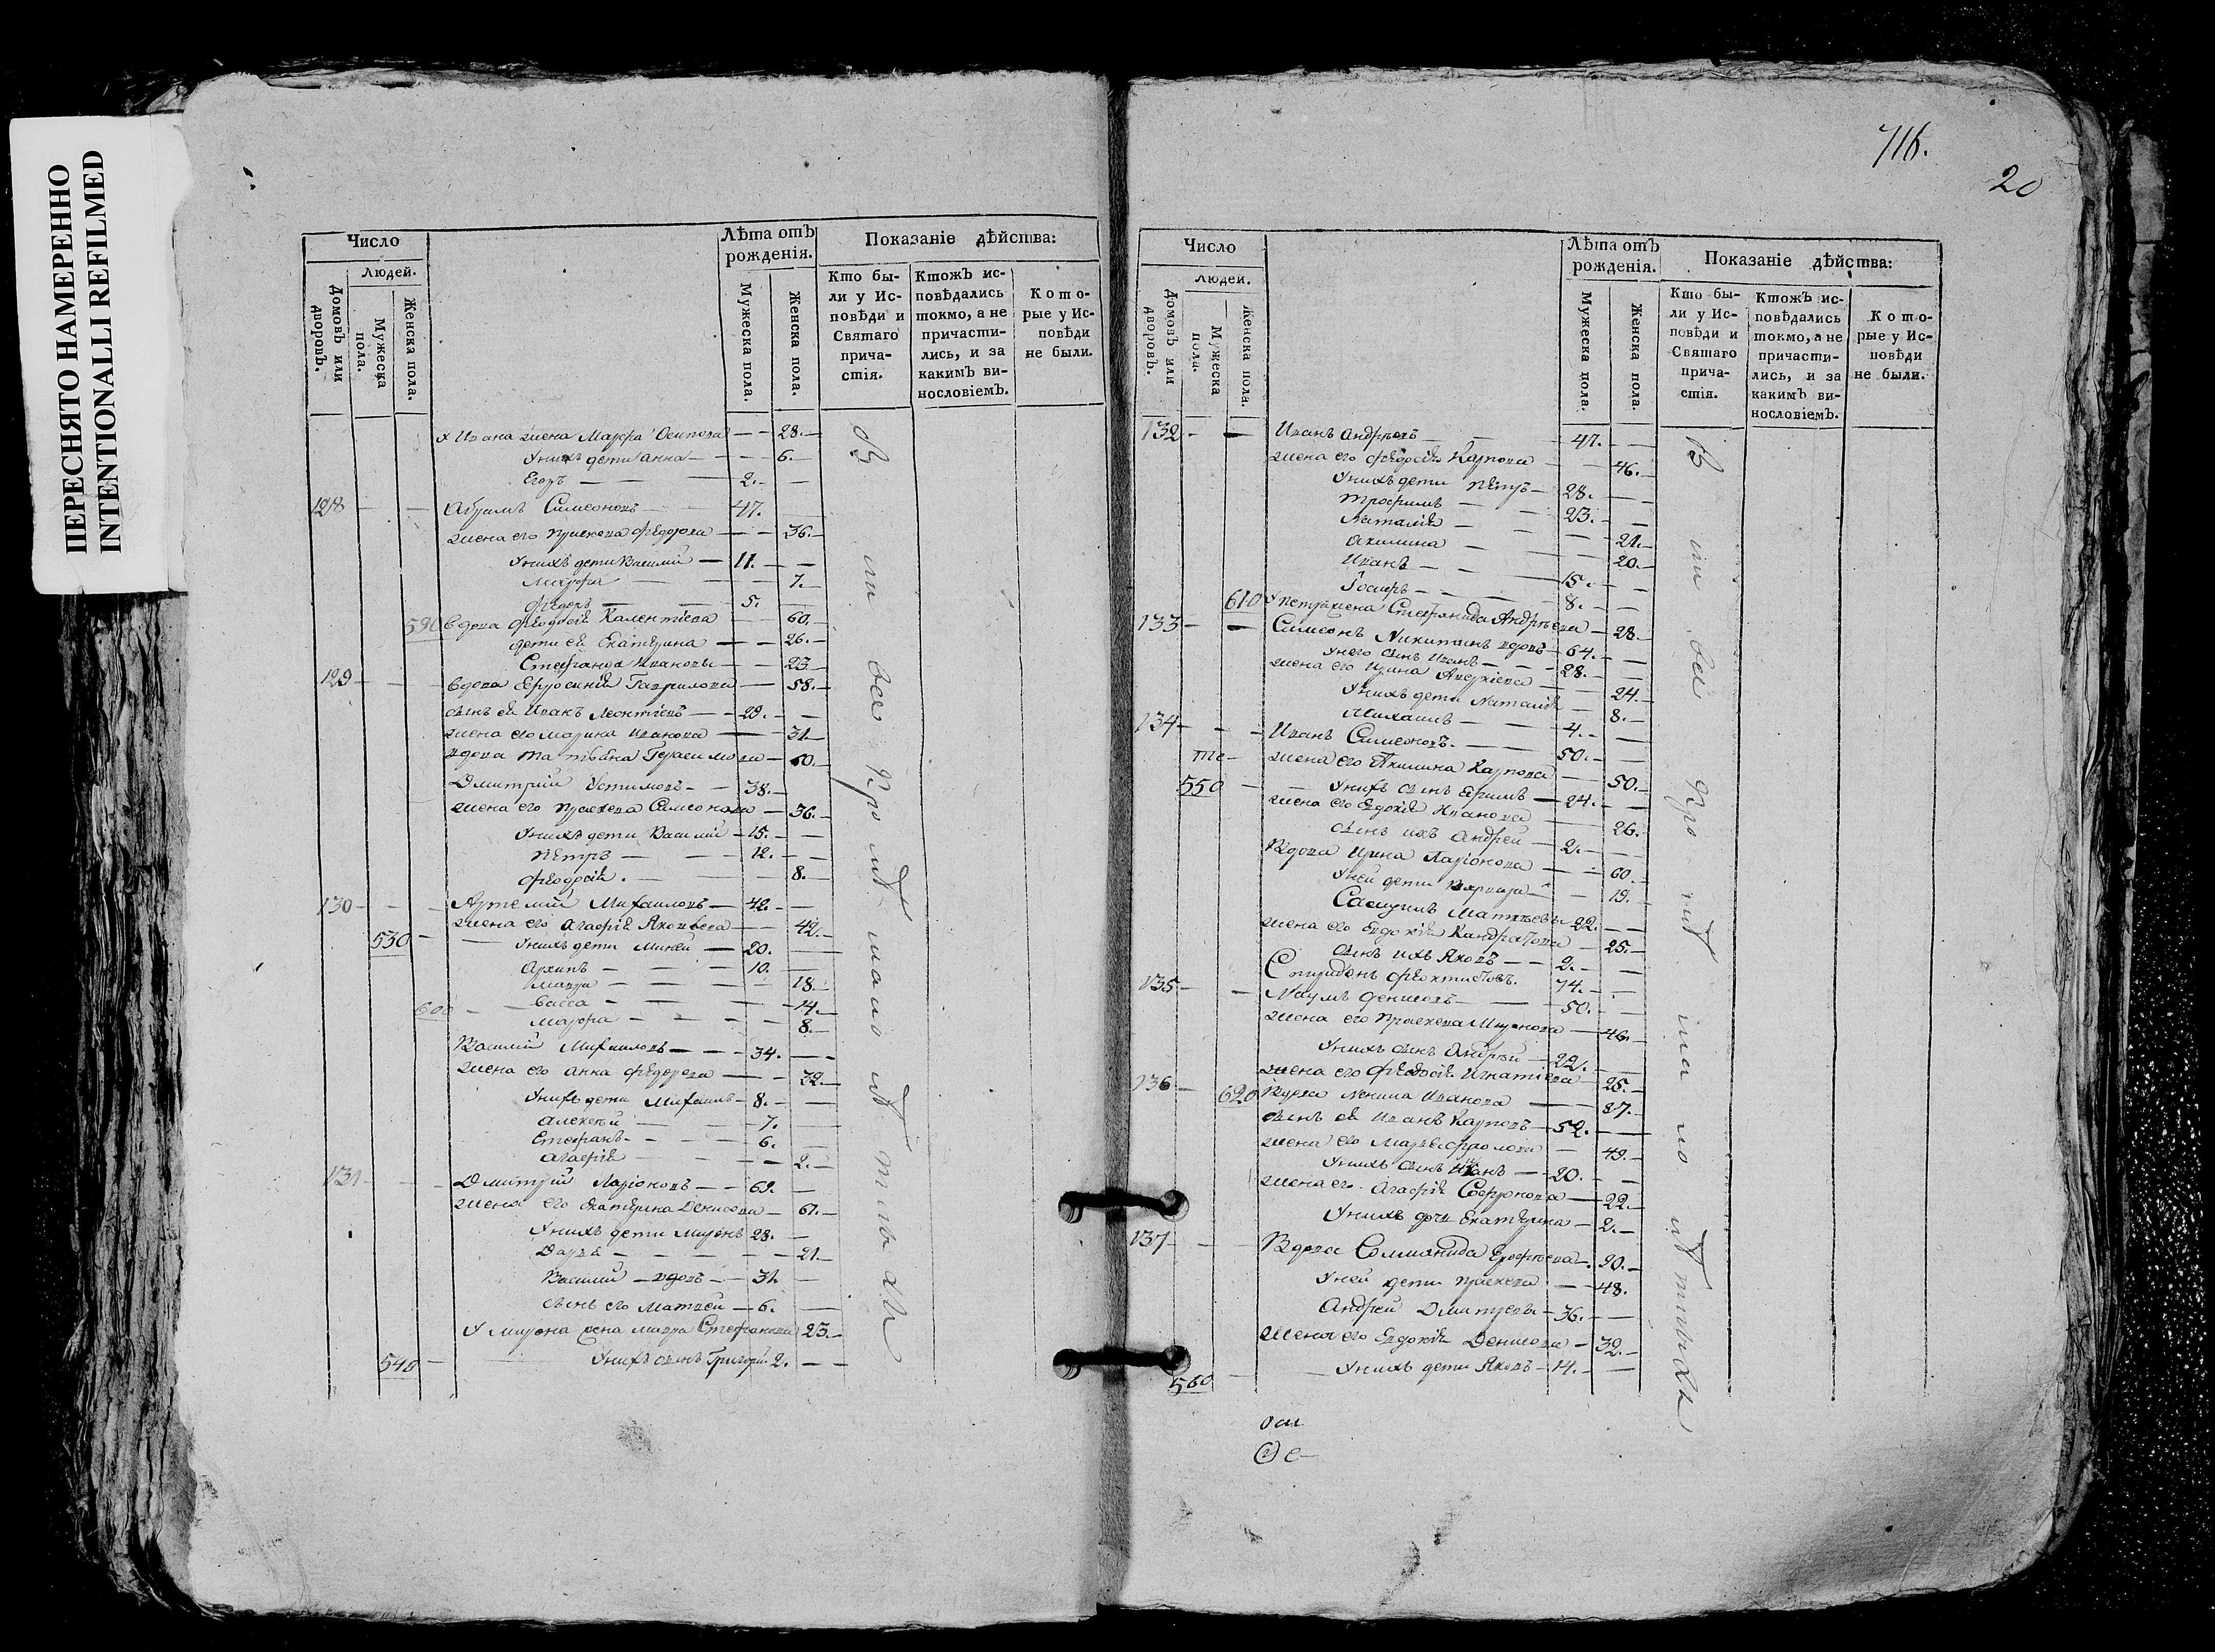 ПЕРЕСНЯТО НАМЕРЕННО
INTENTIONALLI REFILMED
Число
Людей.
Домовъ или дворовъ.
Мужеска пола.
Женска пола.
Лѣта отъ рожденія.
Мужеска пола.
Женска пола.
Показаніе дѣйства:
Кто бы-
ли у Ис-
повѣди и
Святаго
прича-
стія.
Ктожъ ис-
повѣдались
токмо, а не
причасти-
лись, и за
какимъ ви-
нословіемъ.
Кото-
рые у Ис-
повѣди
не были.
У Ивана жена Марфа Осипова — 28.
У нихъ дети Анна — 6.
Егоръ — 2.
128 Абрамъ Симеоновъ 47.
жена его Праскева Федорова — 36.
У нихъ дети Василий — 11.
Марфа — 7.
Федоръ — 5.
590 Вдова Феодосія Калентіева 60.
дети ея Екатерина — 26.
Стефанида Ивановы — 23
129 Вдова Ефросинія Гаврилова — 58.
сынъ ея Иванъ Леонтіевъ — 29.
жена его Марина Иванова — 31.
вдова Татьяна Герасимова — 60.
Дмитрий Устимовъ — 38.
жена его Праскева Симеонова — 36.
У нихъ дети Василий — 15.
Петръ — 12.
Феодосія — 8.
130 Артемий Михаиловъ — 42.
жена его Агафія Яковлева — 42.
530 У нихъ дети Миней — 20.
Архипъ — 10.
Мавра — 18.
600 Васса — 14.
Марфа — 8.
Василий Михаиловъ — 34.
жена его Анна Федорова — 32.
У нихъ дети Михаилъ — 8.
Алексей — 7.
Стефанъ — 6.
Агафія — 2.
131 Дмитрий Ларіоновъ — 69.
жена его Екатерина Денисова — 61.
У нихъ дети Миронъ 28.
Дарья — 21.
Василий — вдовъ — 31.
сынъ его Матвей — 6.
У Мирона жена Мавра Стефанова 23.
540 У нихъ сынъ Григорій 2.
716.
20
Число
Людей.
Домовъ или дворовъ.
Мужеска пола.
Женска пола.
Лѣта отъ рожденія.
Мужеска пола.
Женска пола.
Показаніе дѣйства:
Кто бы-
ли у Ис-
повѣди и
Святаго
прича-
стія.
Ктожъ ис-
повѣдались
токмо, а не
причасти-
лись, и за
какимъ ви-
нословіемъ.
Кото-
рые у Ис-
повѣди
не были.
132 Иванъ Андреевъ — 47.
жена его Феодосія Карпова — 46.
У нихъ дети Петръ — 28.
Трофимъ — 23.
Наталія — 21.
Акилина — 20.
Иванъ — 15.
Іосифъ — 8.
610 У Петра жена Стефанида Андреева — 28.
133 Симеонъ Никитинъ вдовъ — 64.
У него сынъ Иванъ — 28.
жена его Ирина Аверкіева — 24.
У нихъ дети Наталія — 8.
Михаилъ — 4.
134 Иванъ Симеоновъ — 50.
жена его Акилина Карпова — 50.
550 У нихъ сынъ Ефимъ — 24.
жена его Евдокія Иванова — 26.
сынъ ихъ Андрей — 2.
Вдова Ирина Ларіонова — 60.
У ней дети Варвара — 19.
Матвеевы 22.
жена его Евдокія Кандратова — 25.
сынъ ихъ Яковъ — 2.
135 Спиридонъ Феоктистовъ. 74.
Наумъ Денисовъ — 50.
жена его Праскева Миронова — 46.
У нихъ сынъ Андрей — 22.
жена его Феодосія Игнатіева — 25.
136 620 Вдова Иванова — 87.
сынъ ея Иванъ Карповъ — 52.
жена его Марья Фролова — 49.
У нихъ сынъ Иванъ — 20.
жена его Агафія Софронова — 22.
У нихъ дочь Екатерина — 2.
137 Вдова Соломанида Ерофеева — 90.
У ней дети Праскева — 48.
Андрей Дмитриевы — 36.
жена его Евдокія Денисова — 32.
560 У нихъ дети Яковъ — 14.